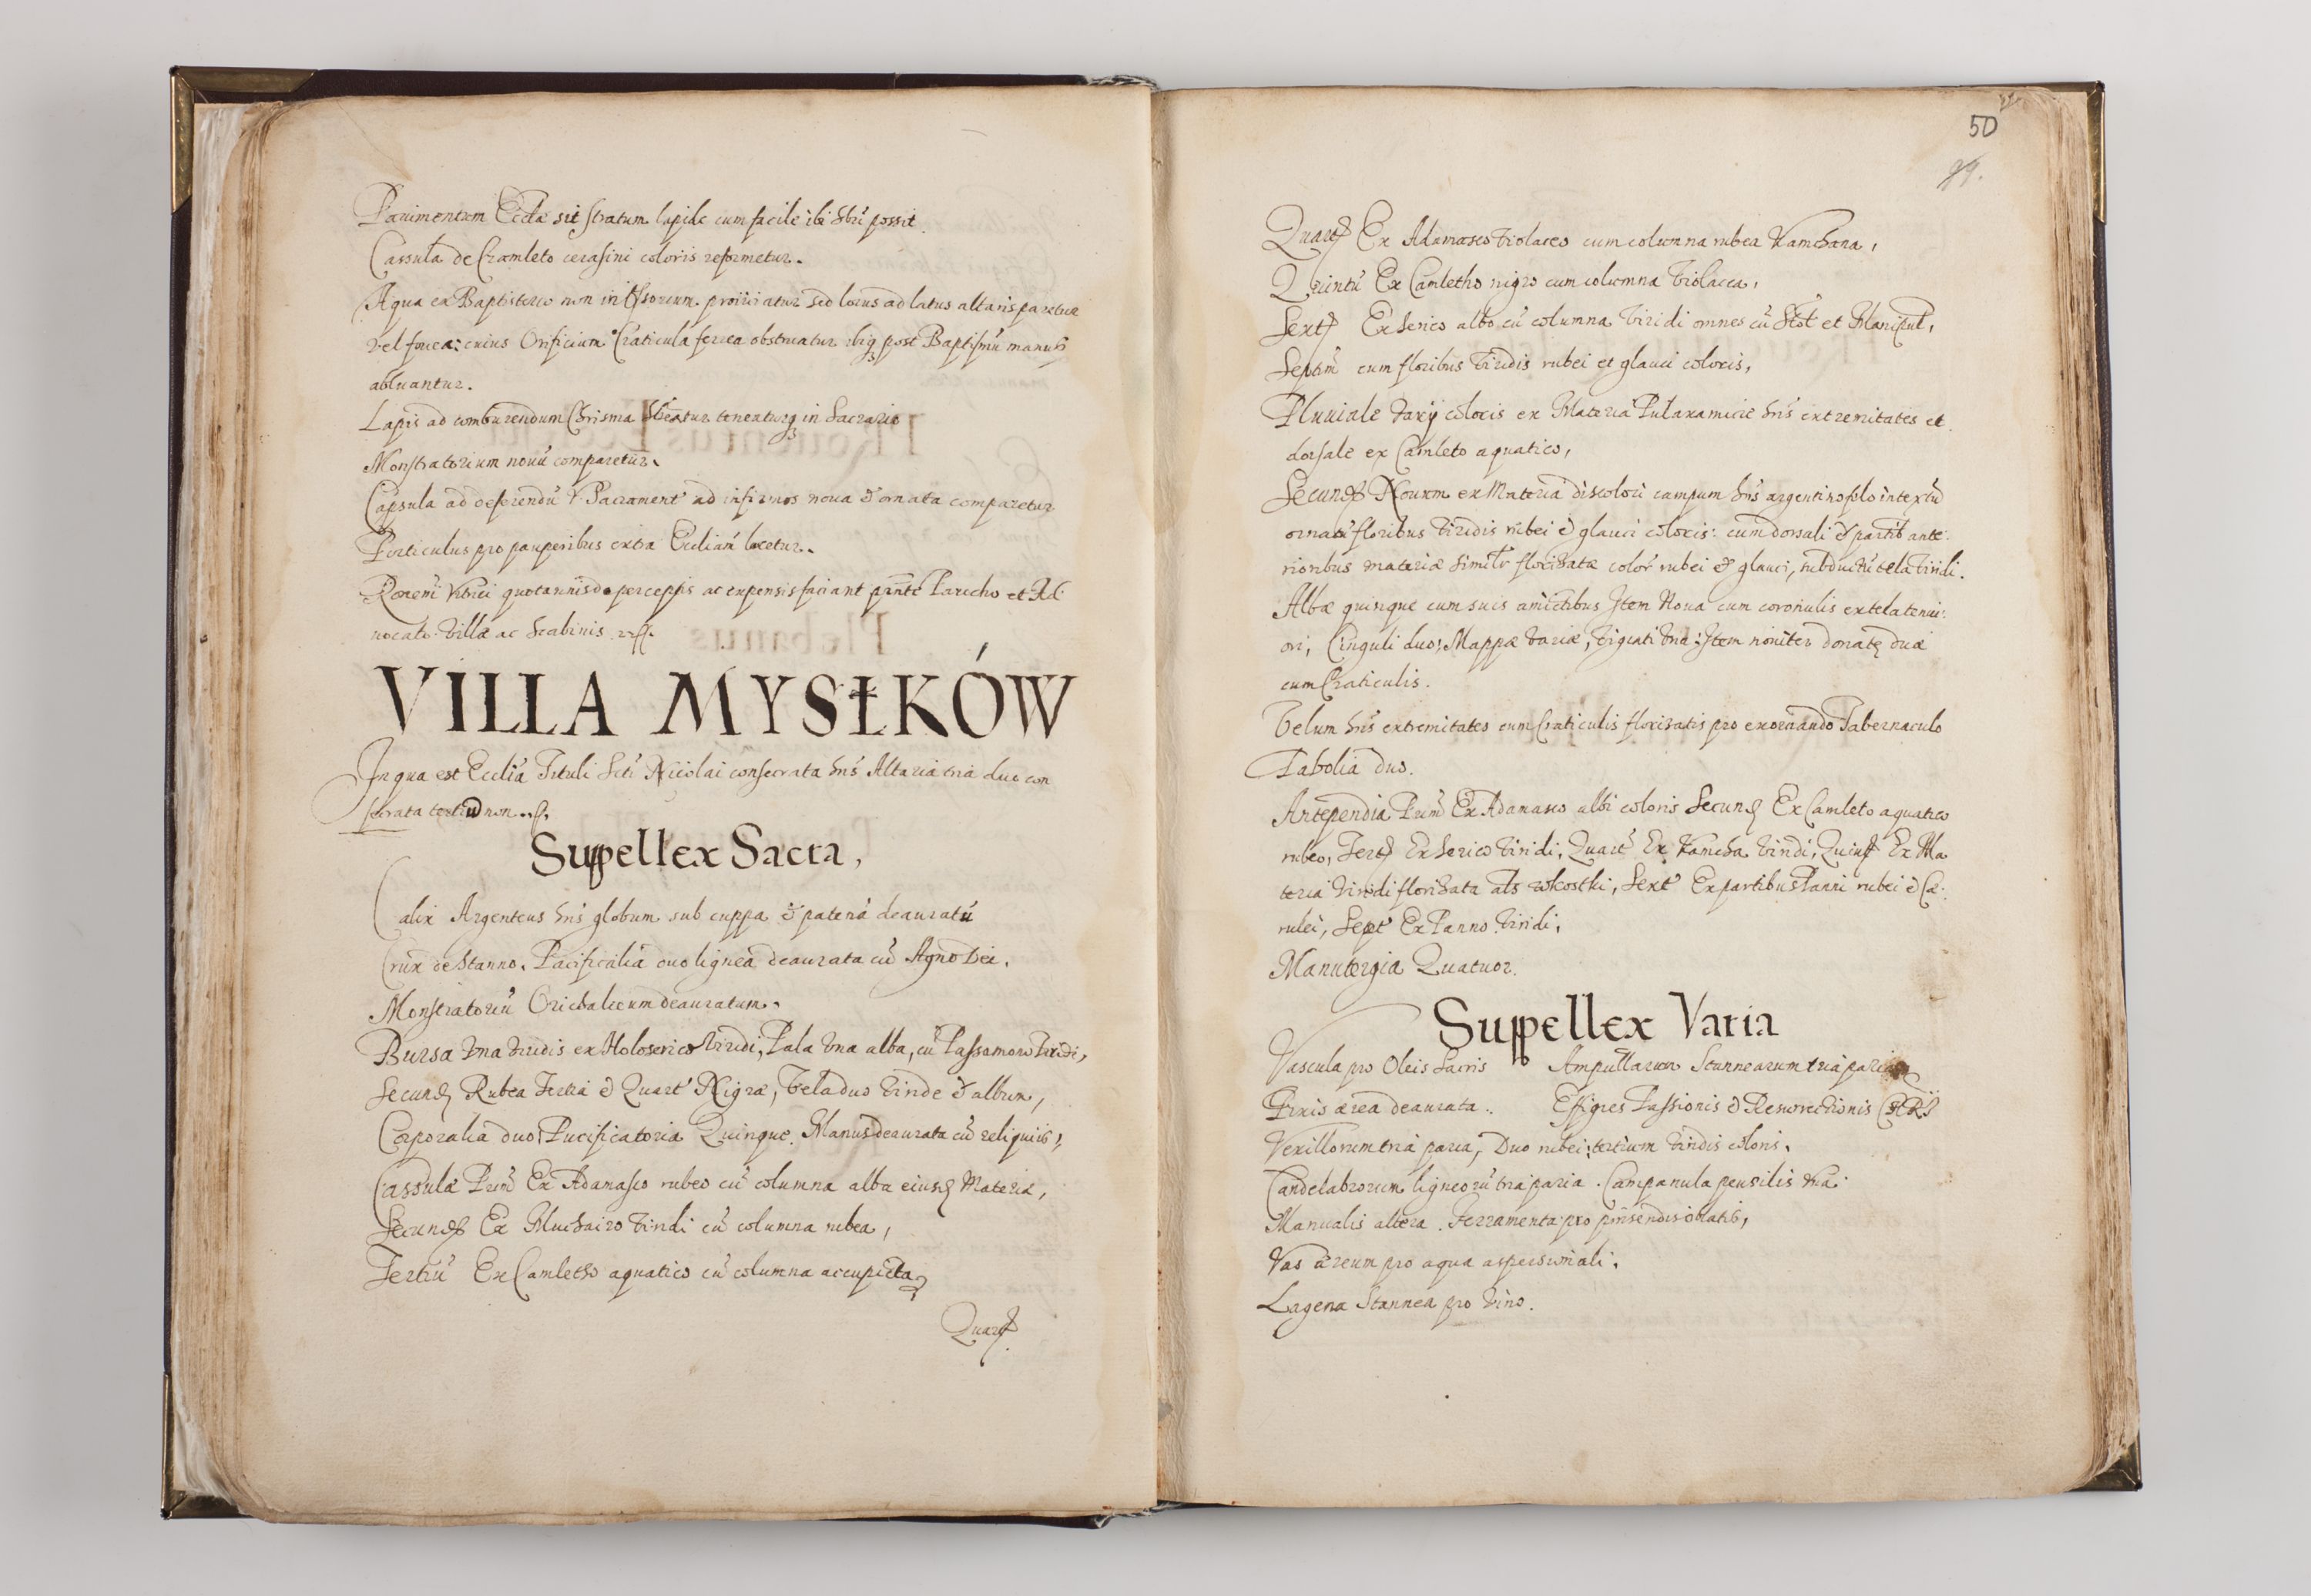 Pauimentum Eccłæ sit stratum lapide cum facile ibi hri possit.
Cassula de Chamleto cerasini coloris reformetur.
Aqua ex Baptisterio non in proiiciatur sed locus ad latus altaris paretur
vel fouea: cuius Orificium Craticula ferrea obstruatur ibiq post Baptismũ manus
abluantur.
Lapis ad comburendum Chrisma hbeatur teneaturq in Sacrario
Monstratorium nouũ comparetur.
Capsula ad deferendũ Sacrament ad infirmos noua & ornata comparetur
Porticulus pro pauperibus extra Eccliam locetur.
Rõnem Vitrici quotannis de perceptis ac expensis faciant pñte Parocho et Ad
uocato Villæ ac Scabinis
VILLA MYSŁKÓW
In qua est Ecclia Tituli Scti Nicolai consecrata hñs Altaria tria duo con
secrata tertiũ non
Suppellex Sacra,
Calix Argenteus hñs globum sub cuppa & patenã deauratũ
Crux de Stanno. Pacificalia duo lignea deaurata cũ Agno Dei.
Monstratoriũ Orichalceum deauratum.
Bursa Vna viridis ex Holoserico Viridi, Pala Vna alba, cũ Passamono Viridi,
Secund Rubea Tertia & Quart Nigræ, Vela duo Viride & album,
Corporalia duo, Purificatoria Quinque. Manus deaurata cũ reliquiis,
Cassulæ Prim Ex Adamasco rubeo cũ columna alba eiusd Materiæ,
Secund Ex Muchairo Viridi cũ columna rubea,
Tertiũ Ex Camletho aquatico cũ columna accupicta
Quart
50
Quart Ex Adamasco Violaceo cum columna rubea Kamchana,
Quintũ Ex Camletho nigro cum columna Violacea,
Sext Ex Serico albo cũ columna Viridi omnes cũ Stol et Manipul,
Septim cum floribus Viridis rubei et glauci coloris,
Pluuiale Varij coloris ex Materia hñs extremitates et
dorsale ex Camleto aquatico,
Secund Nouum ex Materia discolori campum hñs argentino filo intextũ
ornatũ floribus Viridis rubei & glauci coloris: cum dorsali & partib ante:
rioribus materiæ similr florisatæ color rubei & glauci, subductũ tela Viridi.
Albæ quinque cum suis amictibus Item Noua cum coronulis ex tela tenui:
ori, Cinguli duo, Mappæ Variæ, Viginti Vna: Item nouiter donatę duæ
cum Craticulis.
Velum hñs extremitates cum Craticulis florisatis pro exornando Tabernaculo
Tabolia duo.
Antependia Prim Ex Adamasco albi coloris Secund Ex Camleto aquatico
rubeo, Tert Ex Serico Viridi, Quart Ex Kamcha Viridi, Quint Ex Ma
teria Viridi florisata als wkostki, Sext Ex partibus Panni rubei & Cæ:
rulei, Sept Ex Panno Viridi,
Manutergia Quatuor.
Suppellex Varia
Vascula pro Oleis Sacris Ampullarum Stannearum tria paria
Pixis ærea deaurata. Effigies Passionis & Resurrectionis
Vexillorum tria paria, Duo rubei, tertium Viridis coloris.
Candelabrorum ligneorũ tria paria. Campanula pensilis Vna.
Manualis altera. Ferramenta pro pinsendis oblatis,
Vas æreum pro aqua aspersionali.
Lagena Stannea pro Vino.